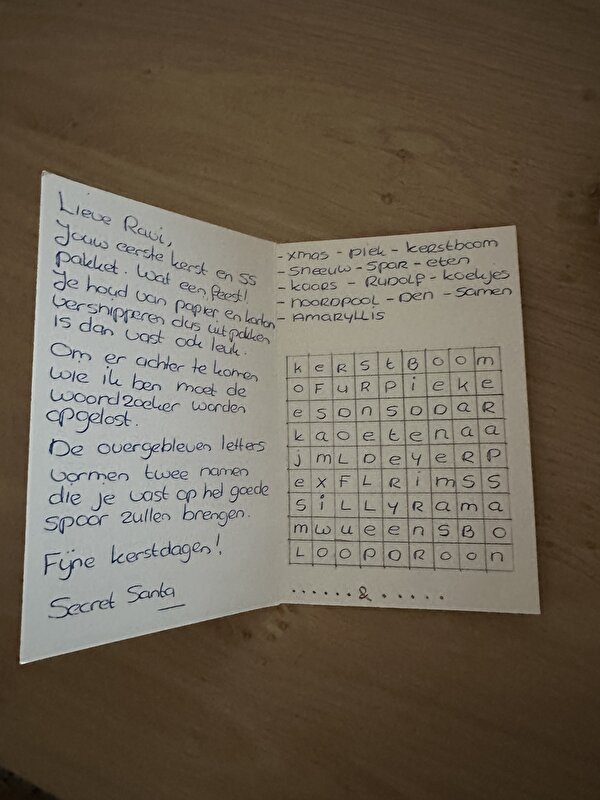 Lieve Ravi,
Jouw eerste kerst en SS
pakket. Wat een feest!
Je houd van papier en karton
versnipperen dus uitpakken
is dan vast ook leuk.
Om er achter te komen
wie ik ben moet de
woordzoeker worden
opgelost.
De overgebleven letters
vormen twee namen
die je vast op het goede
spoor zullen brengen.
Fijne kerstdagen!
Secret Santa
- xmas - piek - kerstboom
- sneeuw - spar - eten
- kaars - Rudolf - koekjes
- noordpool - den - samen
- AMARYLLIS
k e R S t B o o m
o F u R P i e k e
e s o n s o D a R
k a o e t e n a a
j m L D e y e R P
e x F L R i m S S
S i L L y R a m a
m w u e e n S B o
L o o P D R o o n
...... & ......